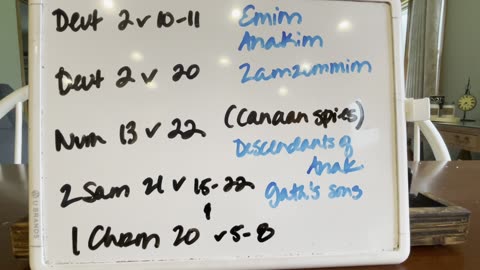 Deut 2 v 10-11 Emim
Anakim
Deut 2 v 20 Zamzummim
Num 13 v 22 (Canaan spies)
Descendants of
Anak
2 Sam 21 v 15-22 gata's sons
1 Chron 20 v 5-8
U BRANDS